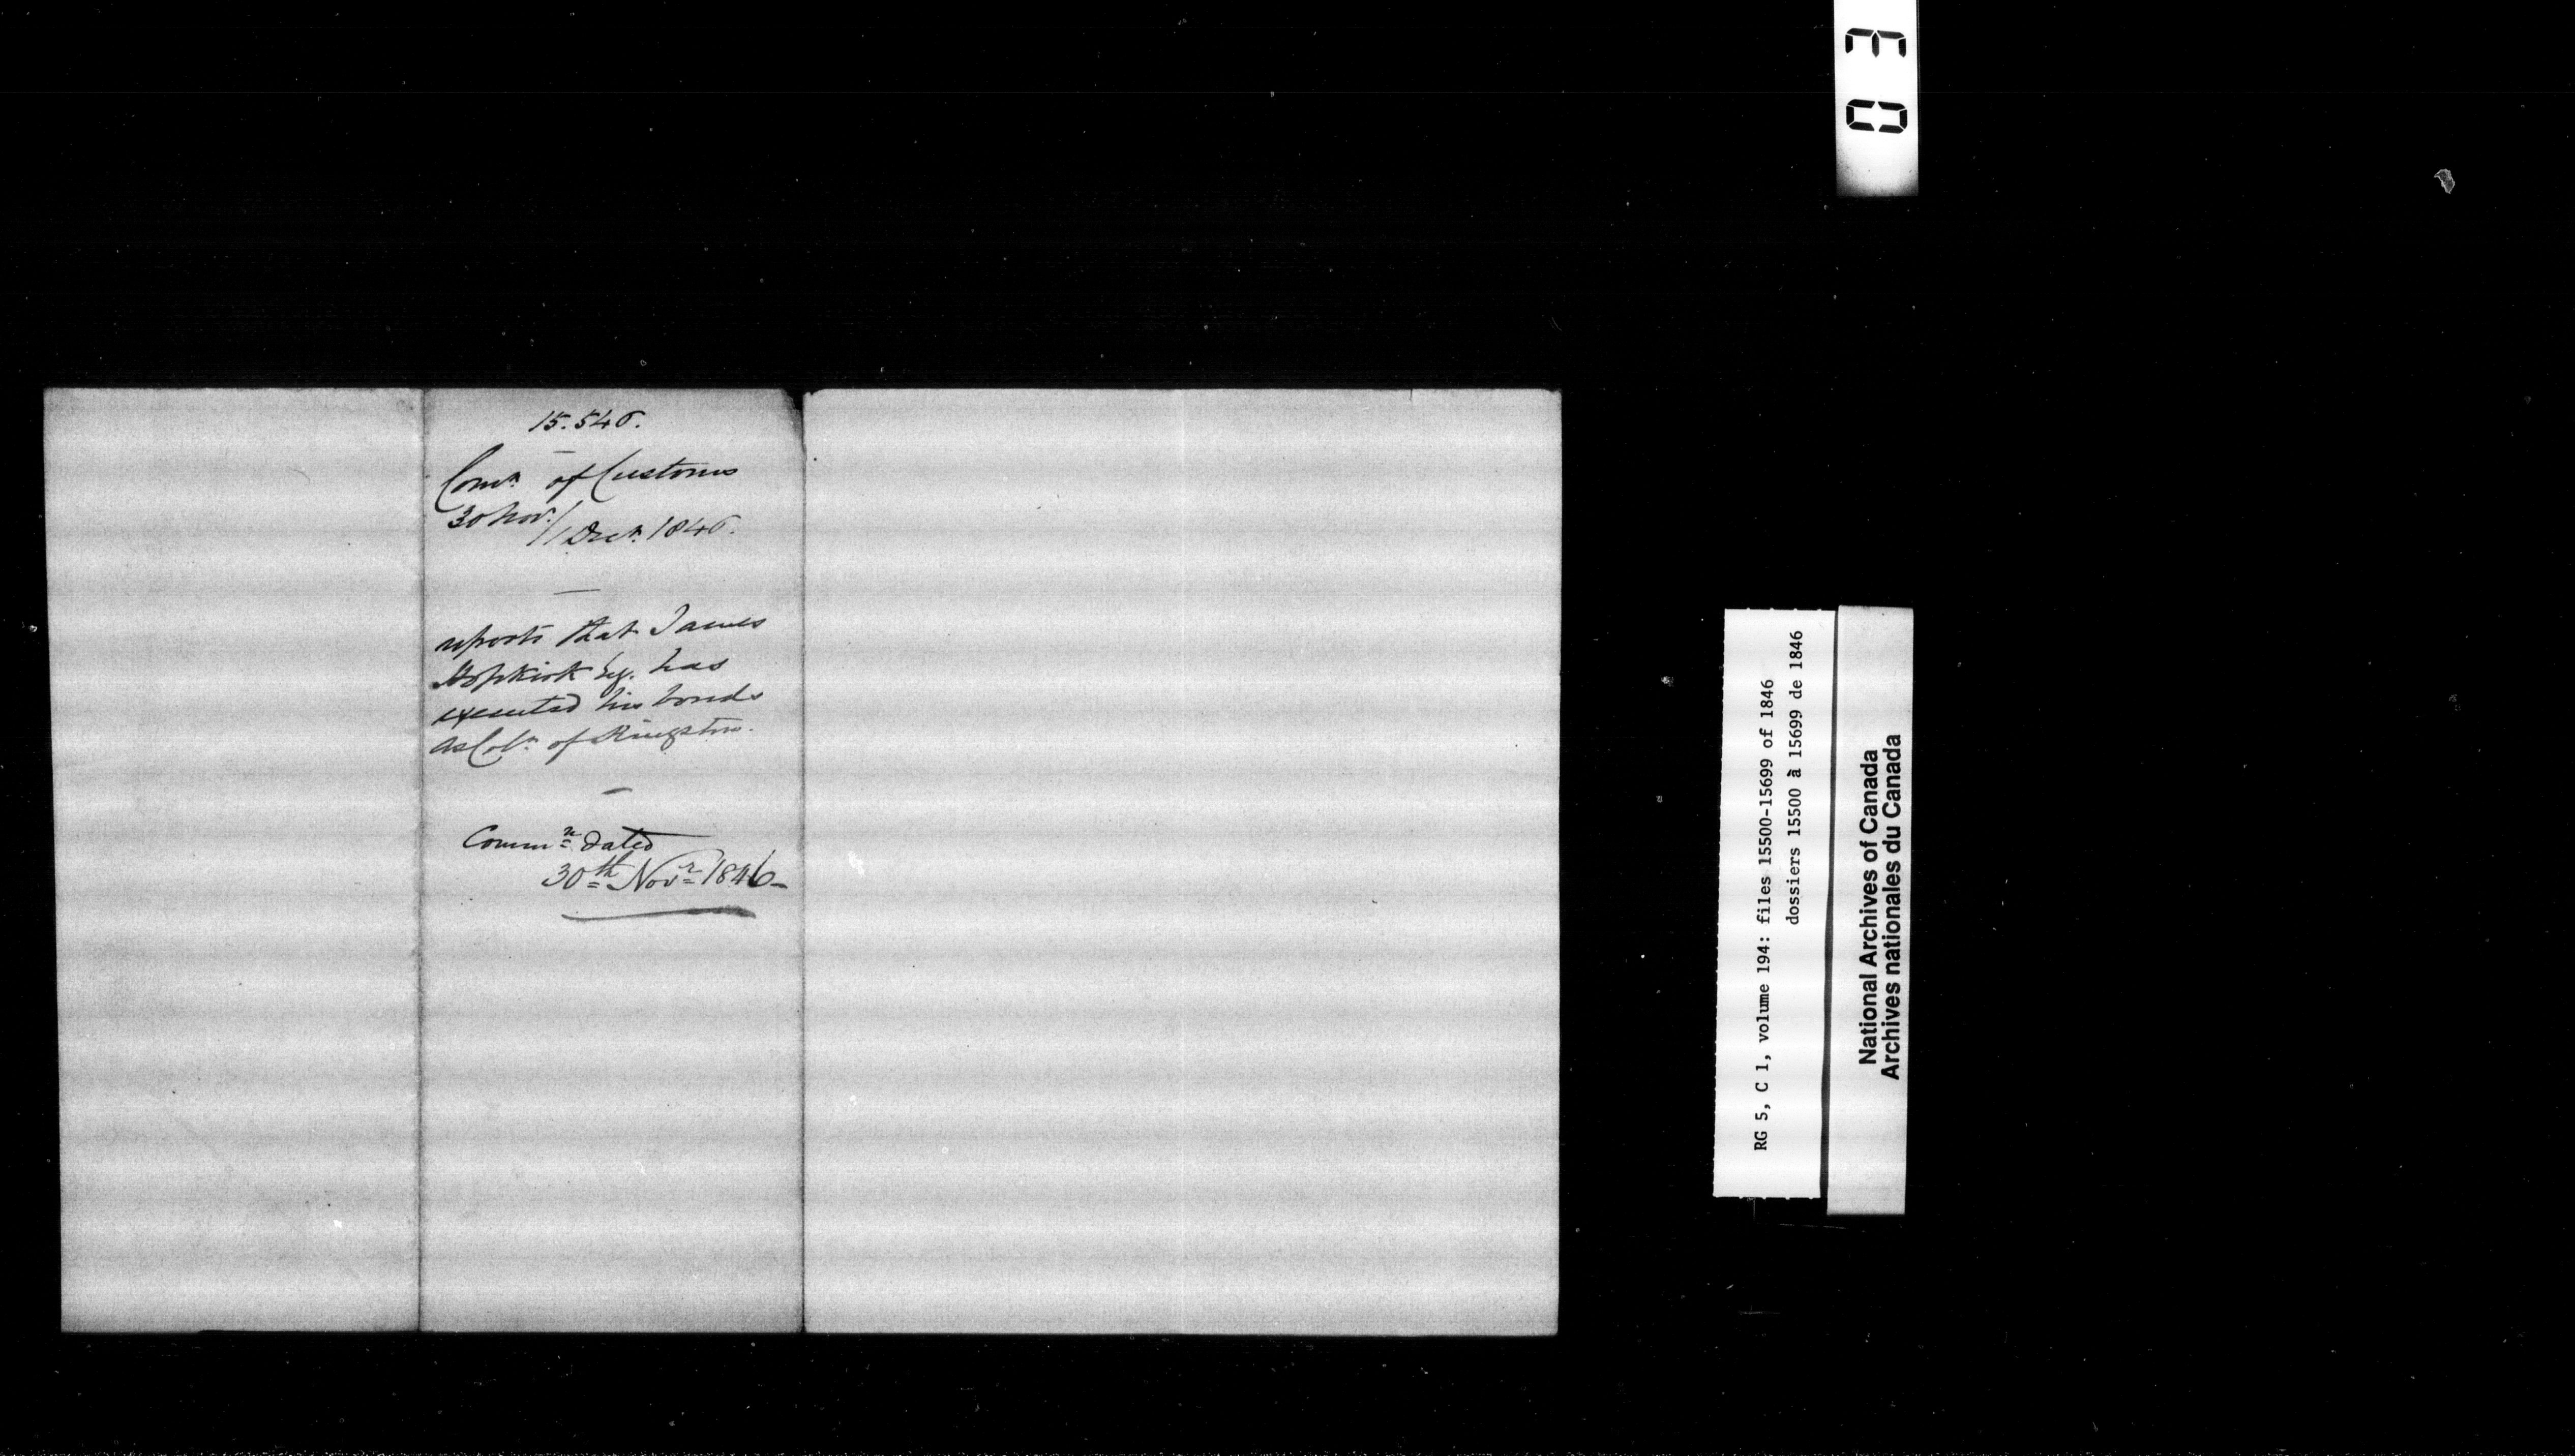 15.546.
Comr. of Customs
30 Nov. / 1 Decr. 1846.
reports that James
Hopkirk Esq. has
executed his bonds
as Colr. of Kingston.
Commn. dated
30th Novr. 1846-
03
RG 5, C 1, volume 194: files 15500-15699 of 1846
dossiers 15500 à 15699 de 1846
National Archives of Canada
Archives nationales du Canada